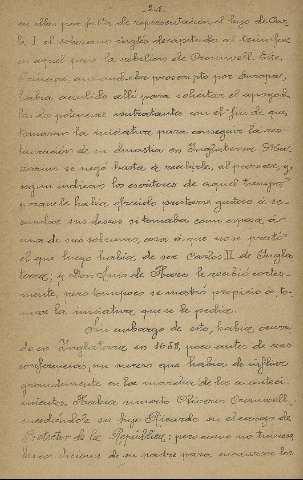 24.
en ellas por falta de representación el hijo de Car-
los I. el soberano inglés decapitado al triunfar
en aquel pais la rebelion de Cromwell. Este
Principe, que anduvo proscripto por Europa,
habia acudido allí para solicitar el apoyo de
las dos potencias contratantes con el fin de que
tomaran la iniciativa para conseguir la res-
tauracion de su dinastia en Inglaterra. Maz-
zarino se negó hasta á recibirle, al parecer, y
segun indican los escritores de aquel tiempo
porque le habia ofrecido ponerse gustoso á se-
cundar sus deseos si tomaba como esposa á
una de sus sobrinas, cosa á que no se prestó
el que luego habia de ser Carlos II de Ingla-
terra; y Don Luis de Haro le recibió cortes-
mente, pero tampoco se mostró propicio á to-
mar la iniciativa que se le pedia.
Sin embargo de esto, habia ocurri-
do en Inglaterra en 1658, poco antes de esas
conferencias, un suceso que habia de influir
grandemente en la marcha de los aconteci-
mientos. Habia muerto Oliverio Cromwell,
sucediéndole su hijo Ricardo en el cargo de
Protector de la República; pero como no tuviera
las condiciones de su padre para encauzar los